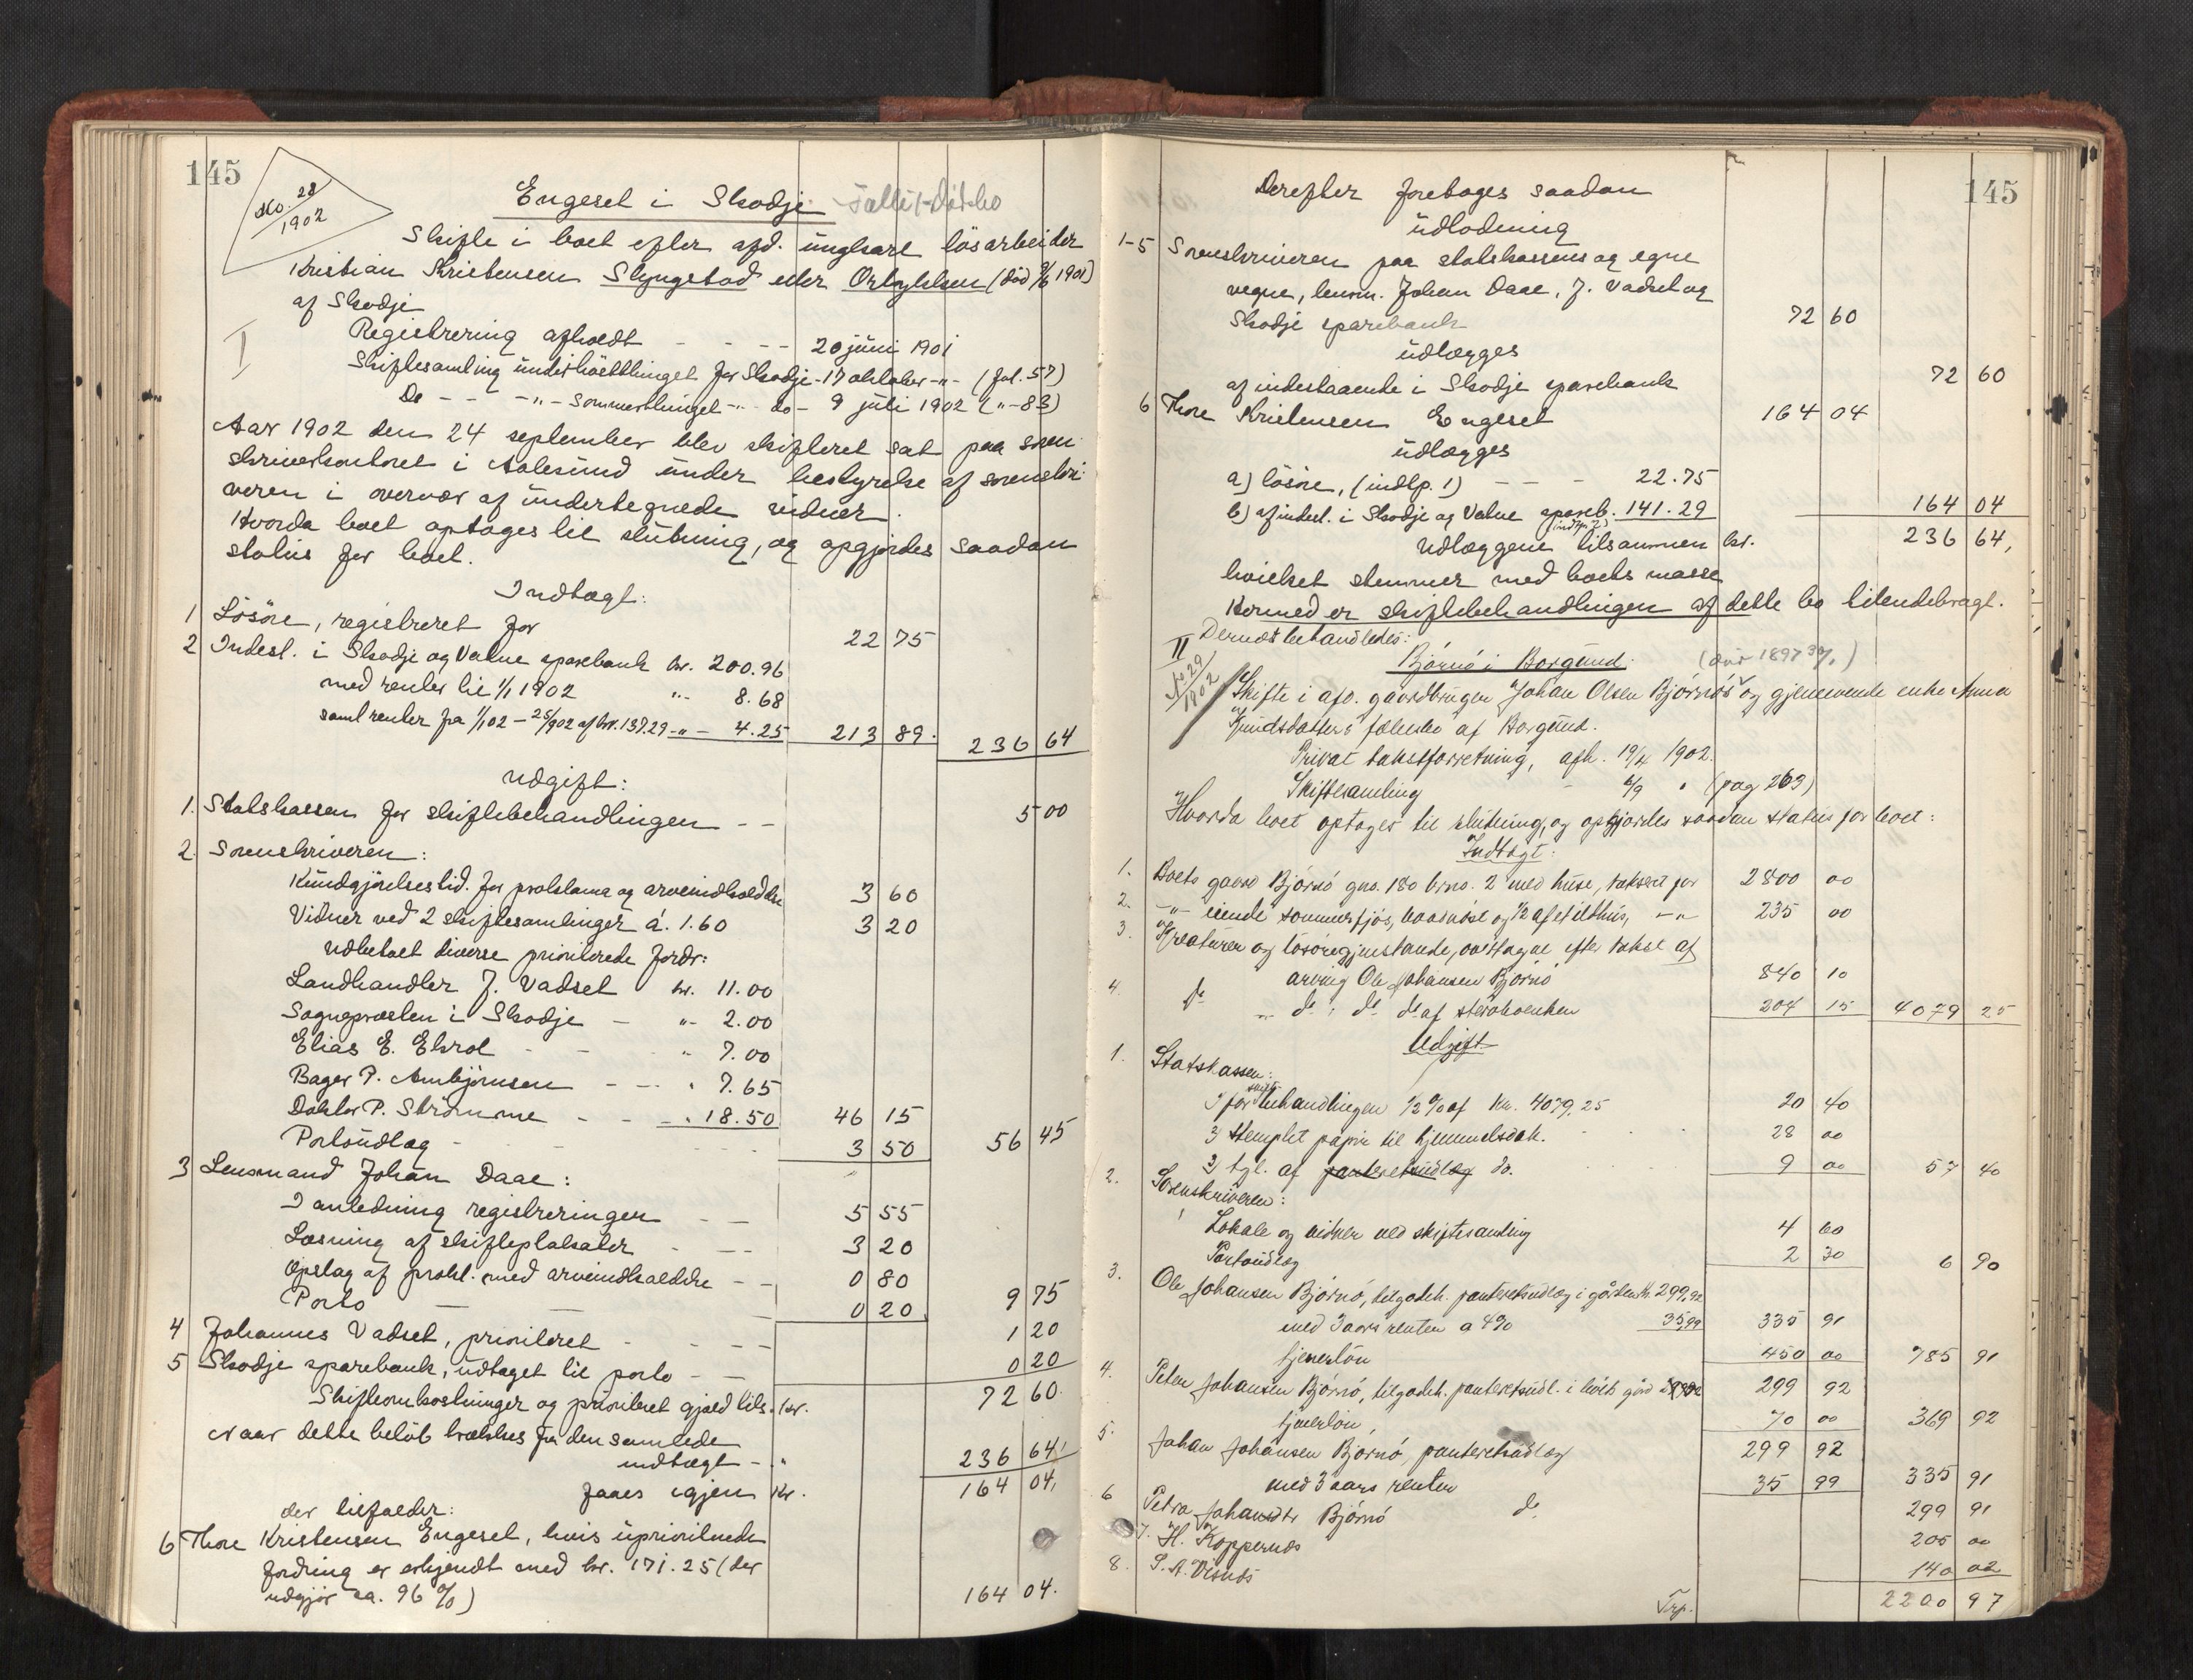 145
No. 28
1902
Engeset i Skodje
Skifte i boet efter afd. ungkarl løsarbeider
Kristian Kristensen Slyngstad eller Ørtoghksen (død 9/6 1901)
af Skodje
I
Registrering afholdt - - - 20 juni 1901
Skiftesamling under høstthinget for Skodje - 17 oktober -"- (fol. 57)
Do - - -"- sommerthinget -"- do - 9 juli 1902 ("- 83)
Aar 1902 den 24 september blev skifteret sat paa soren-
skriverkontoret i Aalesund under bestyrelse af sorenskri-
veren i overvær af undertegnede vidner.
Hvorda boet optages til slutning, og opgjordes saadan
status for boet.
Indtægt:
1 Løsøre, registreret for 22 75
2 Indest. i Skodje og Vatne sparebank kr. 200.96
med renter til 1/1 1902 "- 8.68
samt renter fra 1/1 02 - 25/9 02 af kr. 137.29 -"- 4.25 213 89. 236 64
Udgift:
1. Statskassen for skiftebehandlingen - - 5 00
2. Sorenskriveren:
Kundgjørelsestid. for proklama og arveindkaldelse 3 60
Vidner ved 2 skiftesamlinger á. 1.60 3 20
Udbetalt diverse prioriterede fordr:
Landhandler J. Vadset kr. 11.00
Sognepresten i Skodje - "- 2.00
Elias E. Ekrol - - " 7.00
Bager P. Arnbjørnsen - - " 7.65
Doktor P. Strømme - - " 18.50 46 15
Portoudlæg - 3 50 56 45
3 Lensmand Johan Daae:
I anledning registreringen - - 5 55
Læsning af skifteplakater - - 3 20
Opslag af prokl. med arveindkaldelse - - 0 80
Porto - - 0 20 9 75
4 Johannes Vadset, prioriteret - - - 1 20
5 Skodje sparebank, udtaget til porto - - 0 20
Skifteomkostninger og prioriteret gjæld tils. kr. 72 60.
Naar dette beløb trækkes fra den samlede
indtægt - " 236 64
faaes igjen kr. 164 04,
der tilfalder:
6 Thore Kristensen Engeset, hvis uprioriterede
fordring er erkjendt med kr. 171.25 (der
udgjør ca. 96 %) 164 04.
145
Derefter foretages saadan
udlodning
1-5 Sorenskriveren paa statskassens og egne
vegne, lensm. Johan Daae, J. Vadset og
Skodje sparebank 72 60
udlægges
af indestaaende i Skodje sparebank 72 60
6 Thore Kristensen Engeset 164 04
udlægges
a) løsøre, (indtp. 1) - - - 22.75
b) af indest. i Skodje og Vatne spareb. 141.29 164 04
(indtp. 2)
Udlæggene tilsammen kr. 236 64,
hvilket stemmer med boets masse
Hermed er skiftebehandlingen af dette bo tilendebragt.
II Dernæst behandledes:
Bjørnø i Borgund.
No 29
1902
Skifte i afd. gaardbruger Johan Olsen Bjørnøs og gjenlevende enke Anna
Knudsdatters fællesbo af Borgund.
Privat takstforretning, afh. 19/4 1902.
Skiftesamling - 4/9 " (pag 263)
Hvorda boet optages til slutning, og opgjordes saadan status for boet:
Indtægt:
1. Boets gaard Bjørnø gno. 180 brno. 2 med huse, takseret for 2800 00
2. -"- eiende sommerfjøs, baadnøst og 1/2 af et ildhus, -"- 235 00
3. Kreaturer og løsøregjenstande, overtagne efter takst af
arving Ole Johansen Bjørnø 840 10
4. do -"- do, do do af stervboenken 204 15 4079 25
Udgift
1. Statskassen:
1) for skiftebehandlingen 1/2 % af kr. 4079,25 20 40
2) stemplet papir til hjemmelsdok. 28 00
3) tgl. af panteretsudlæg do. 9 00 57 40
2. Sorenskriveren:
Lokale og vidner ved skiftesamling 4 60
Portoudlæg 2 30 6 90
3. Ole Johansen Bjørnø, tilgodeh. panteretsudlæg i gården kr. 299,92
med 3 aars renter a 4% 35,99 335 91
tjenerløn 450 00 785 91
4. Peter Johansen Bjørnø, tilgodeh. panteretsudl. i boets gård 299 92
tjenerløn 70 00 369 92
5. Johan Johansen Bjørnø, panteretsudlæg 299 92
med 3 aars renter 35 99 335 91
6 Petra Johansdtr Bjørnø do 299 91
7. H. Koppernæs 205 00
8. P. A. Visnæs 140 02
Trp. 2200 97